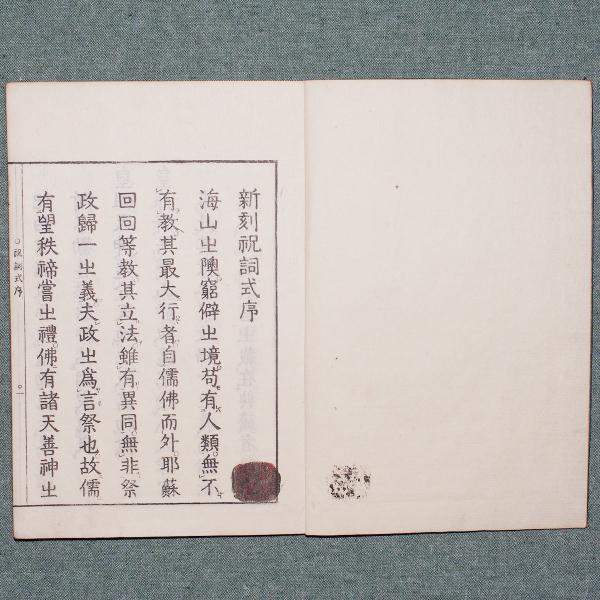 新刻祝詞式序
海山㞢隩窮僻㞢境苟有人類無不
有教其最大行者自儒佛而外耶蘇
回回等教其立法雖有異同無非祭
政歸一㞢義夫政㞢為言祭也故儒
有望秩禘嘗㞢禮佛有諸天善神㞢
○祝詞式序
○一